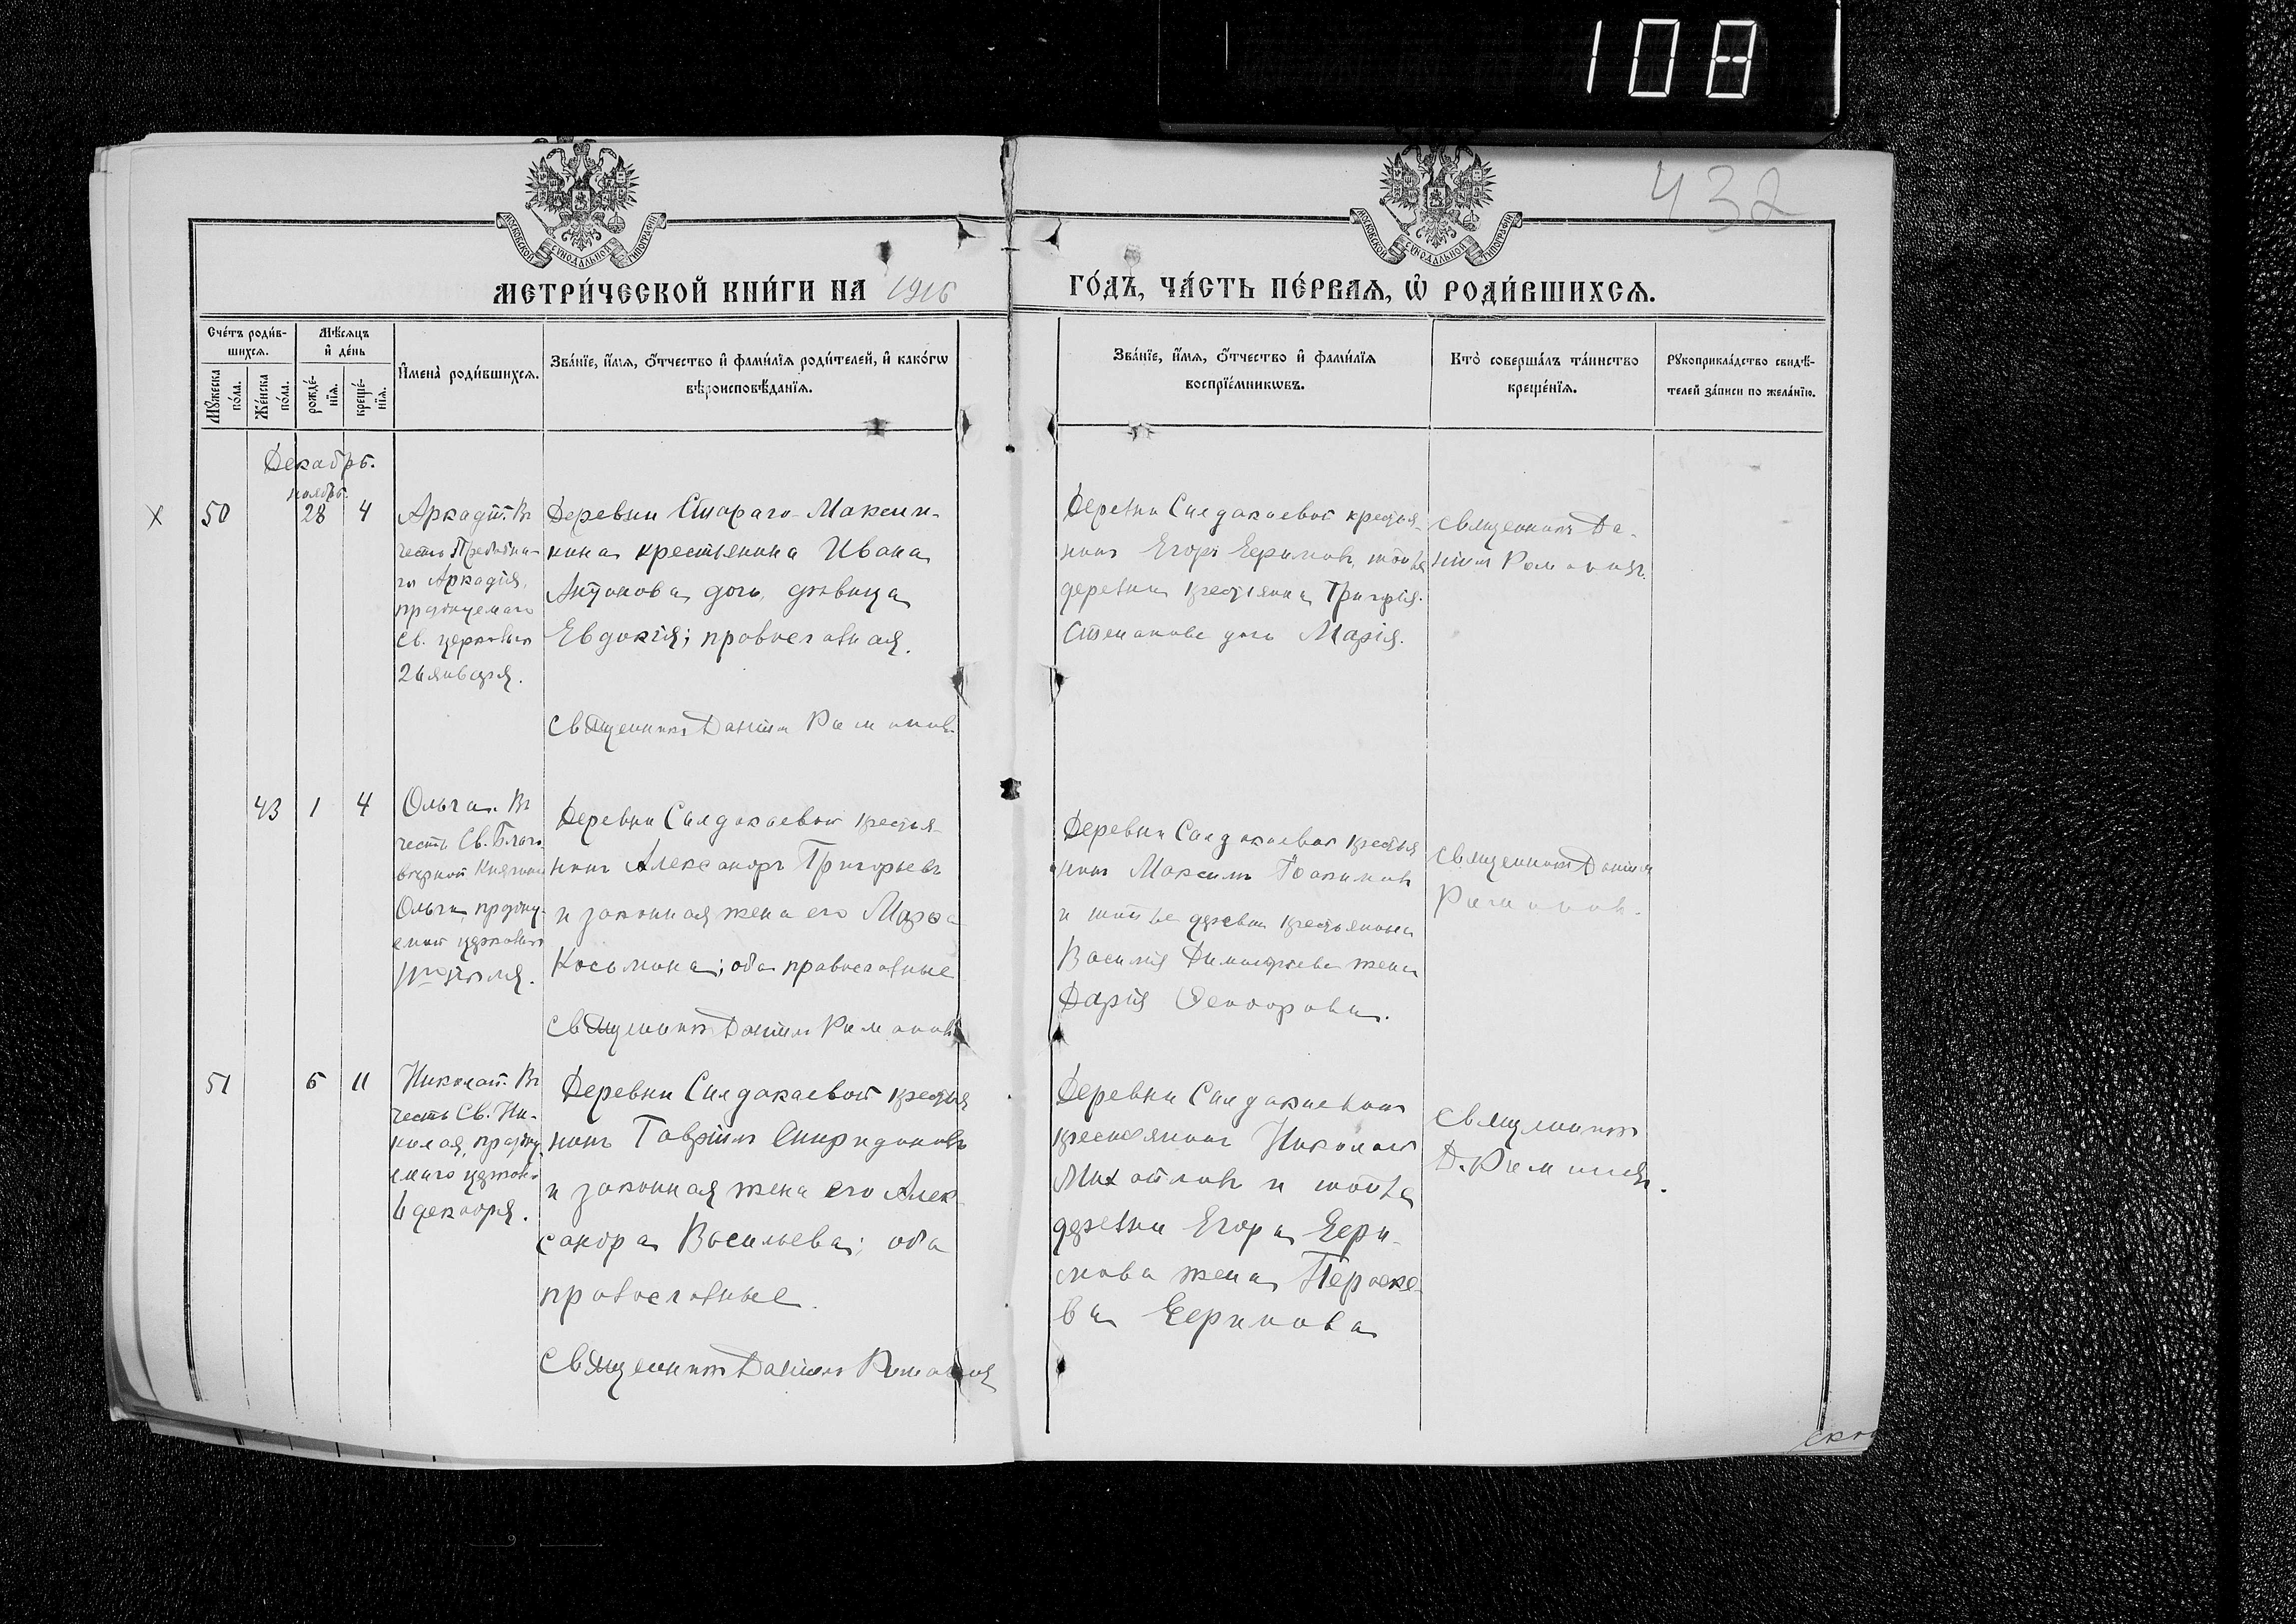 108
432
МОСКОВСКОЙ СѴНОДАЛЬНОЙ ТИПОГРАФІИ
МОСКОВСКОЙ СѴНОДАЛЬНОЙ ТИПОГРАФІИ
МЕТРИ́ЧЕСКОЙ КНИ́ГИ НА 1916
ГО́ДЪ, ЧА́СТЬ ПЕ́РВАЯ, Ѽ РОДИ́ВШИХСЯ.
Сче́тъ роди́в-
шихся.
Мꙋ́жеска
по́ла.
Же́нска
по́ла.
Мѣ́сяцъ
и҆ де́нь
рожде́-
нїя.
креще́-
нїя.
И҆мена̀ роди́вшихся.
Зва́нїе, и҆́мя, ѻ҆́тчество и҆ фами́лїя роди́телей, и҆ како́гѡ
вѣроисповѣ́данїя.
Зва́нїе, и҆́мя, ѻ҆́тчество и҆ фами́лїя
воспрїе́мникѡвъ.
Кто̀ соверша́лъ та́инство
креще́нїя.
Рꙋкоприкла́дство свидѣ́-
телей за́писи по жела́нїю.
Декабрь.
ноябрь.
х 50 28 4
Аркадій. Въ
честь Преподна-
го Аркадія,
празднуемаго
Св. церковью
26 января.
Деревни Стараго-Максим-
кина крестьянина Ивана
Антонова дочь, дѣвица
Евдокія; православная.
Священникъ Даніилъ Романовъ
Деревни Салдакаевой крестья-
нинъ Егоръ Ефимовъ, той же
деревни крестьянина Григорія
Степанова дочь Марія.
Священникъ Да-
ніилъ Романовъ.
43 1 4
Ольга. Въ
честь Св. Благо-
вѣрной Княгини
Ольги празну-
емой церковью
11го іюля.
Деревни Салдакаевой крестья-
нинъ Александръ Григорьевъ
и законная жена его Марѳа
Косьмина; оба православные
Священникъ Даніилъ Романовъ
Деревни Салдакаевой крестья
нинъ Максимъ Іоакимовъ
и той же деревни крестьянина
Василія Димитріева жена
Дарія Ѳеодорова.
Священникъ Даніилъ
Романовъ.
51 6 11
Николай. Въ
честь Св. Ни-
колая, празну
емаго церков.
6 декабря.
Деревни Салдакаевой крестья
нинъ Гавріилъ Спиридоновъ
и законная жена его Алек-
сандра Васильева; оба
православные.
Священникъ Даніилъ Романовъ
Деревни Салдакаевой
крестьянинъ Николай
Михайловъ и той же
деревни Егора Ефи-
мова жена Параске-
ва Ефимова
Священникъ
Д. Романовъ.